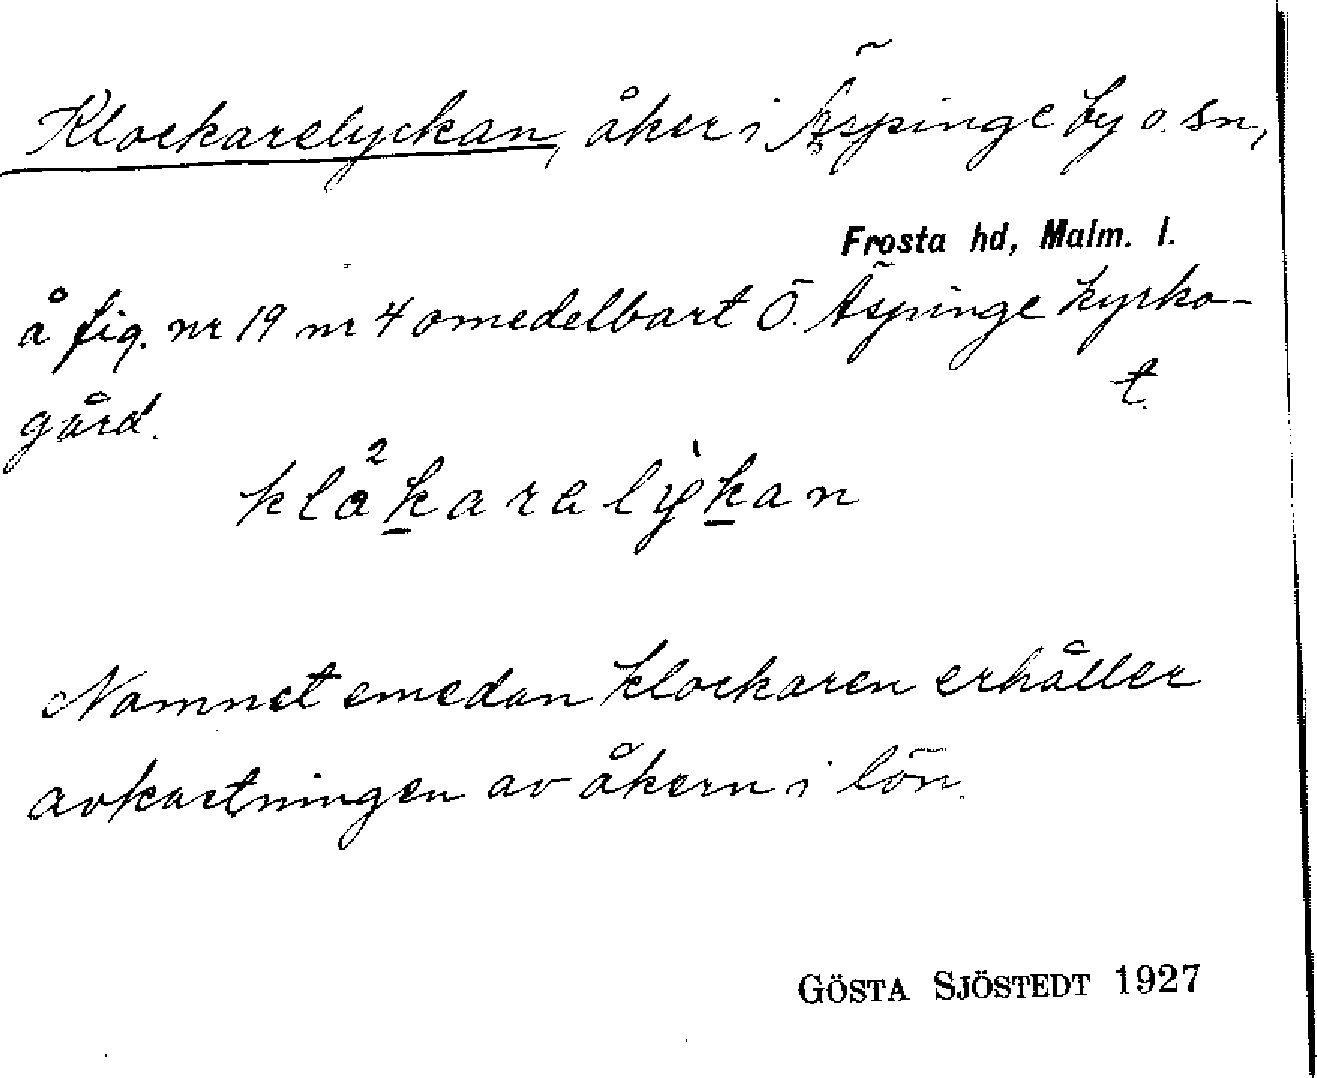 Klockarelyckan, åker i Äspinge by o. sn,
Frosta hd, Malm. l.
å fig. nr 19 nr 4 omedelbart Ö. Äspinge kyrko-
gård. t.
klåkaralykan
Namnet emedan klockaren erhåller
avkastningen av åkern i lön.
GÖSTA SJÖSTEDT 1927